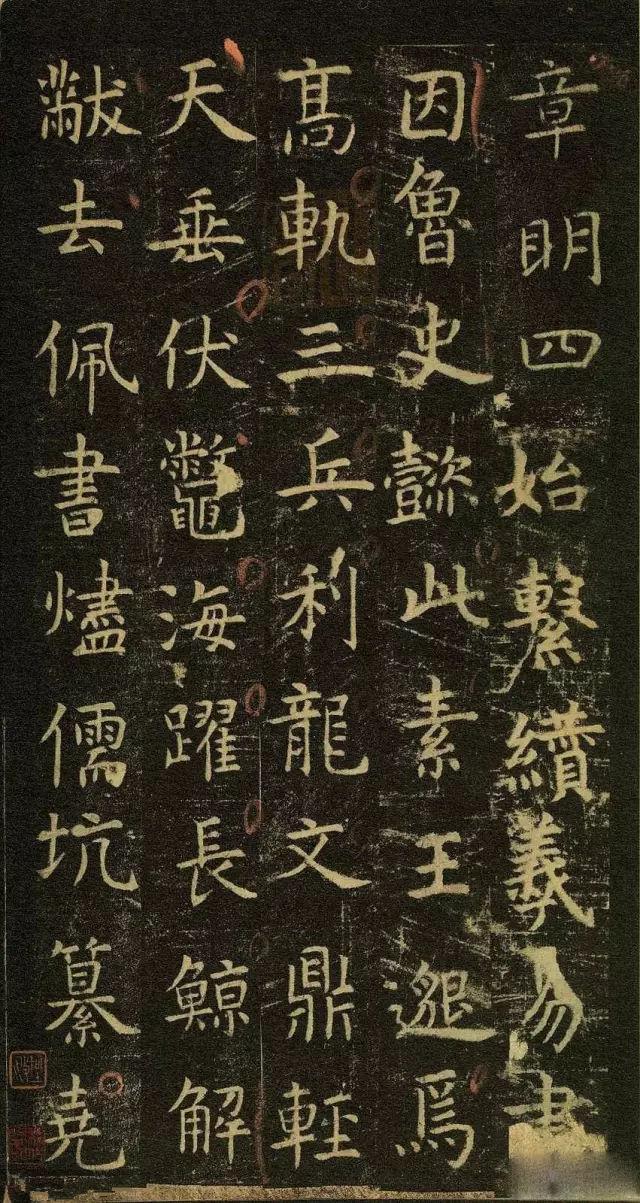 章明四始繫纘羲易書
因魯史懿此素王邈焉
高軌三兵利龍文鼎輕
天垂伏鼈海躍長鯨解
黻去佩書燼儒坑纂堯